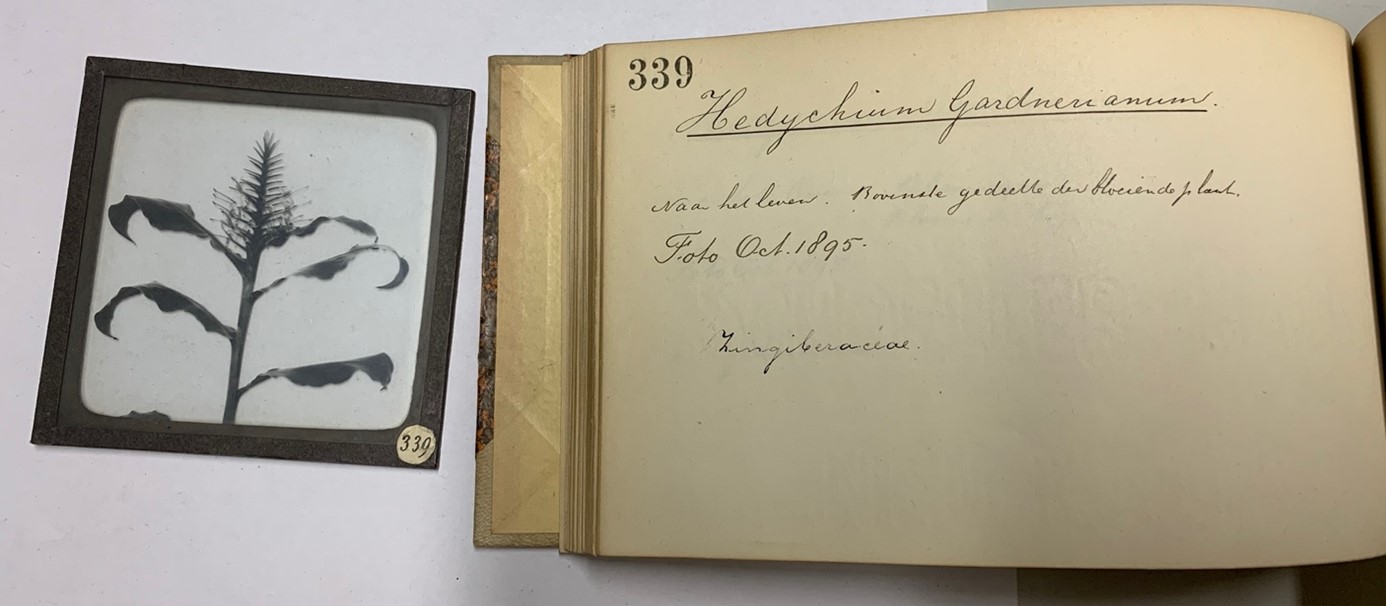 339
339
Hedychium Gardnerianum.
Naar het leven. Bovenste gedeelte der bloeiende plant.
Foto Oct. 1895.
Zingiberaceae.